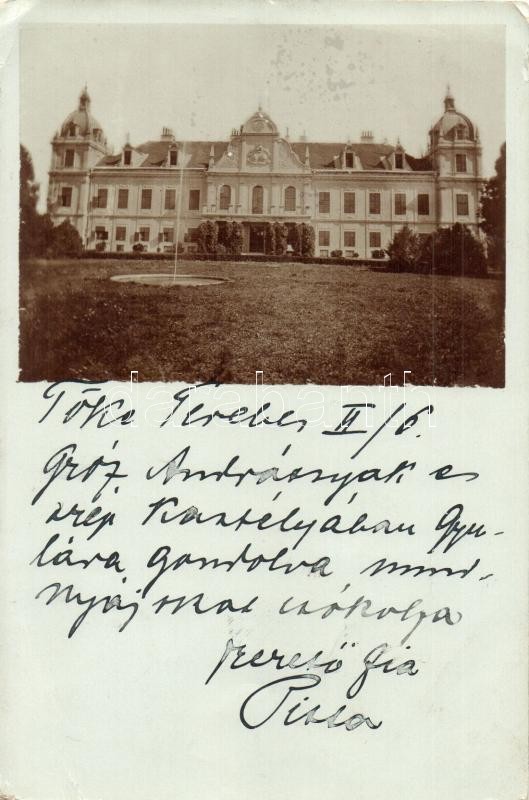 Tőke Terebes II/6.
Gróf Andrássyak es
szép Kastélyában Gyu-
lára gondolva mind-
nyájokat csókolja
szerető fia
Pista
darabanth